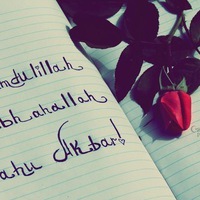 mdulillah
bhanallah
ahu Akbar!